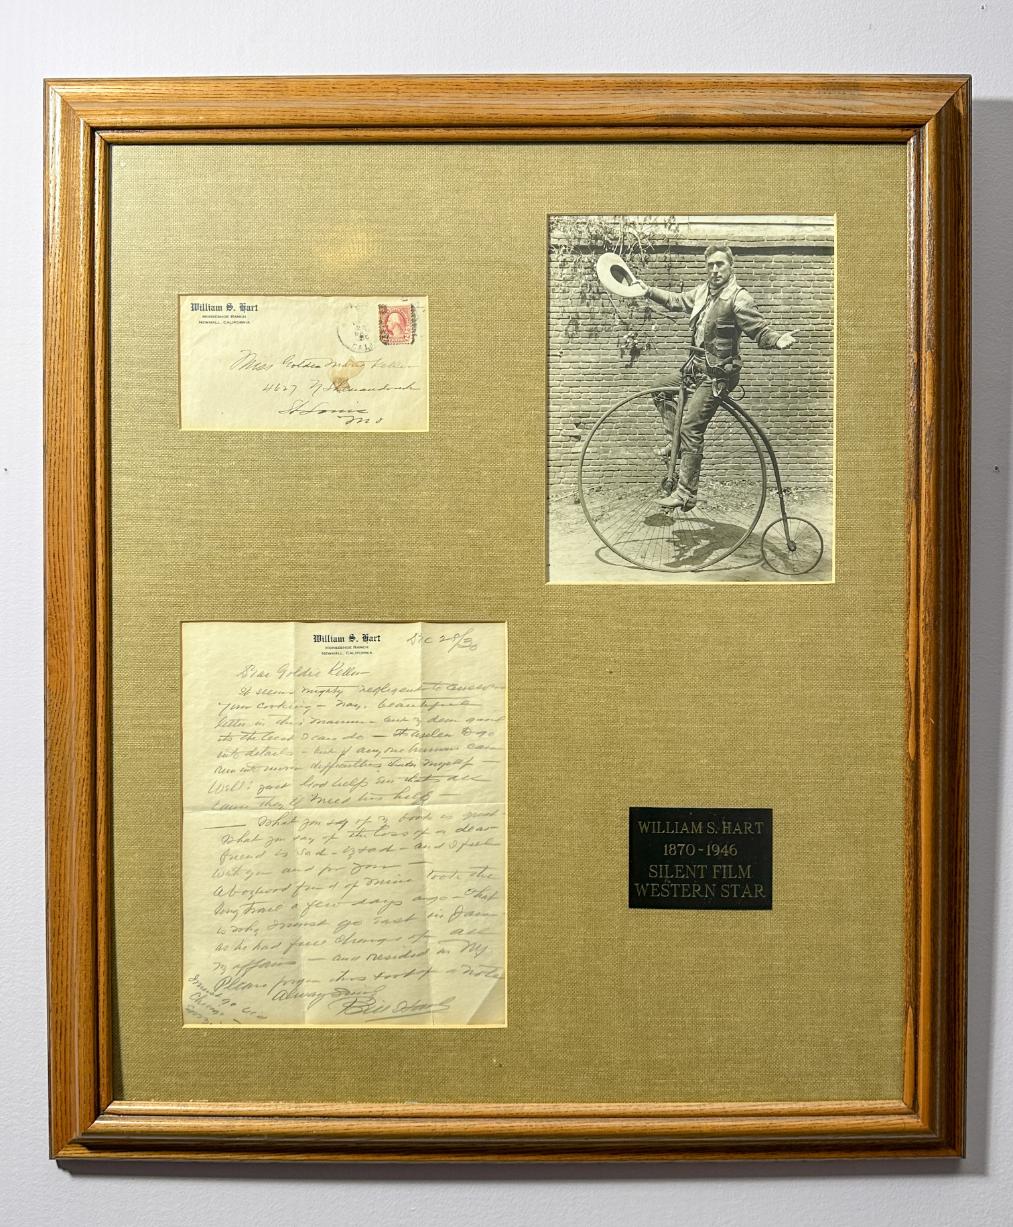 William S. Hart
HORSESHOE RANCH
NEWHALL, CALIFORNIA
CAL
Miss Goldie
4627
St Louis
Mo
William S. Hart
HORSESHOE RANCH
NEWHALL, CALIFORNIA
Dec 28/30
Dear Goldie Keller
It seems mighty negligent to answer
your - nay, beautiful
letter in this manner - but
its the best I can do - to go
into details - if any one human can
run into more difficulties than myself -
Well! just God help em thats all
cause they'll need his help -
What you say of my book is great -
What you say of the loss of a dear
friend is sad - - and I feel
with you and for you -
A boyhood friend of mine took the
long trail a few days ago - that
is why I must go East in Jan -
as he had full charge of all
my affairs - and resided in NY
Please forgive this sort of a note
Always
Bill Hart
I must go via
WILLIAM S. HART
1870-1946
SILENT FILM
WESTERN STAR